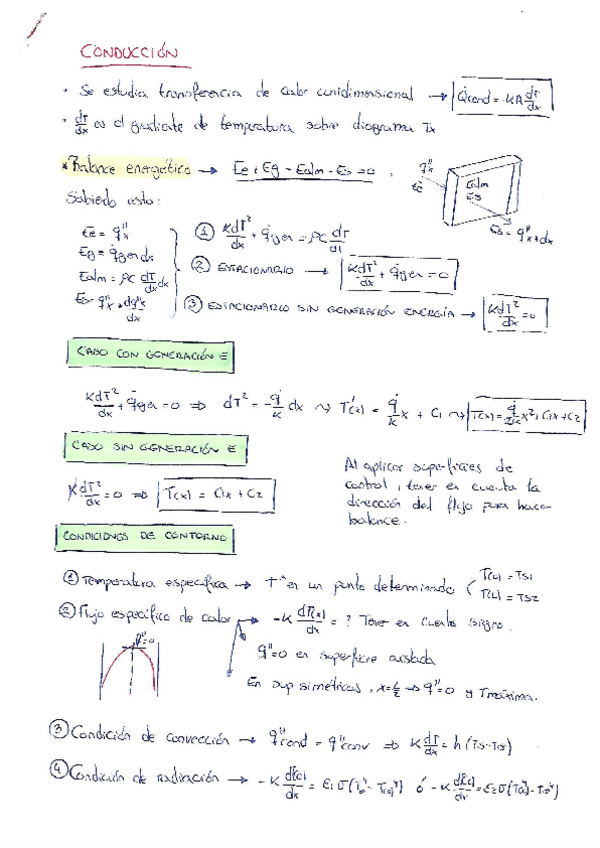 CONDUCCIÓN
· Se estudia transferencia de calor unidimensional → Q̇cond = -KA dT/dx
· dT/dx es el gradiente de temperatura sobre diagrama Tx
* Balance energético → Ėe + Ėg - Ėalm - Ės = 0
q''x
Ėe
Ėalm
Ėg
Ės = q''x+dx
Sabiendo esto:
Ėe = q''x
Ėg = q̇gen dx
Ėalm = ρc dT/dt dx
Ės = q''x + dq''x/dx
① KdT²/dx + q̇gen = ρc dT/dt
② ESTACIONARIO → KdT²/dx + q̇gen = 0
③ ESTACIONARIO SIN GENERACIÓN ENERGÍA → KdT²/dx = 0
CASO CON GENERACIÓN E
KdT²/dx + q̇gen = 0 ⇒ dT² = -q̇/k dx ⇝ T'(x) = q̇/k x + C1 ⇝ T(x) = q̇/2k x² + C1x + C2
CASO SIN GENERACIÓN E
KdT²/dx = 0 ⇒ T(x) = C1x + C2
Al aplicar superficies de
control, tener en cuenta la
dirección del flujo para hacer
balance.
CONDICIONES DE CONTORNO
① Temperatura específica → Tª en un punto determinado
T(L) = TS2
② Flujo específico de calor → -K dT(x)/dx = ? Tener en cuenta signo.
q''=0
q''=0 en superficie aislada
En sup simétricas, x=L/2 → q''=0 y Tmáxima.
③ Condición de convección → q''cond = q''conv ⇒ K dT/dx = h (Ts-T∞)
④ Condición de radiación →